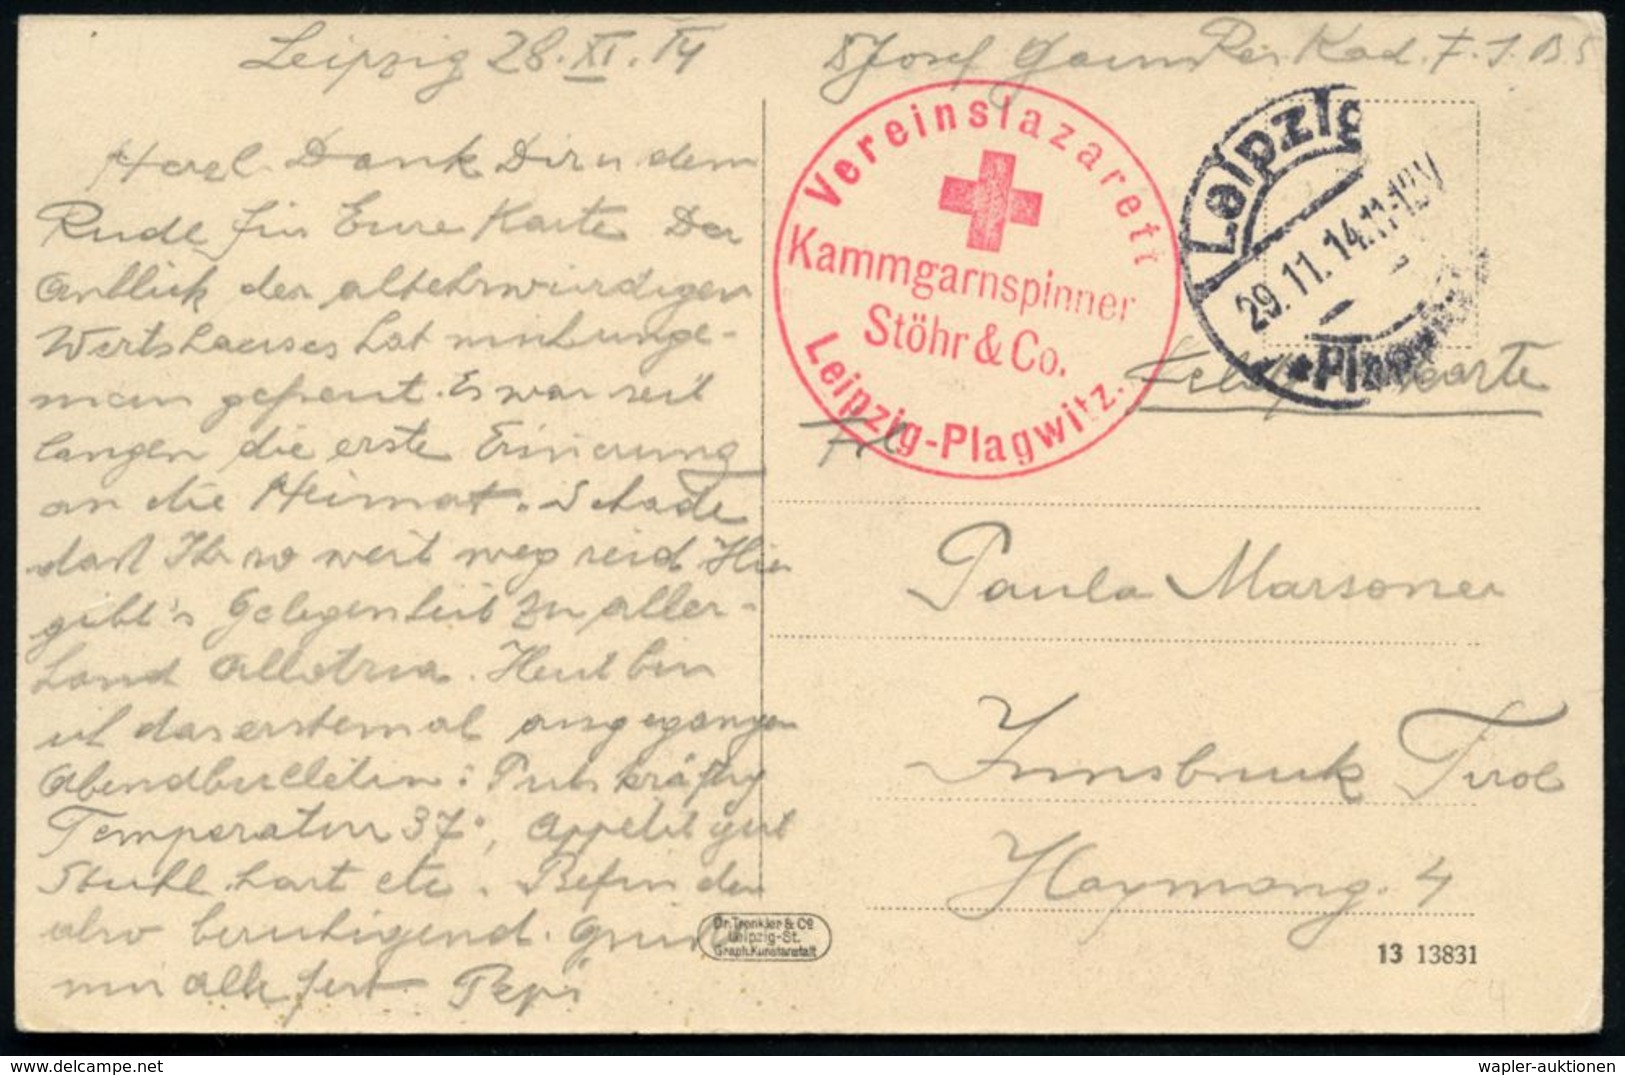 Leipzig 28. XI. 14
Josef Kad. F. J. B. 5
Herzl. Dank Dir u dem
Rudl für Eure Karte Der
Anblick des altehrwürdigen
Wertshauses hat mich unge-
mein gefreut. Es war seit
langen die erste Erinerung
an die Heimat. Schade
daß Ihr so weit weg seid Hier
gibt's Gelegenheit zu aller-
hand Allotria. Heut bin
ich das erstemal ausgegangen
Abendbulletin: Puls kräftig
Temperatur 37°, Appetit gut
Stuhl hart etc. Befinden
also beruhigend. Grüß
mir alle fest Pepi
Vereinslazarett
Kammgarnspinner
Stöhr & Co.
Leipzig-Plagwitz.
Leipzig
29.11.14.11-12V
*Plagwitz
Feldpostkarte
Frl
Paula Marsoner
Innsbruck Tirol
Haymong. 4
Dr. Trenkler & Co
Leipzig-St.
Graph. Kunstanstalt
13 13831
wapler-auktionen